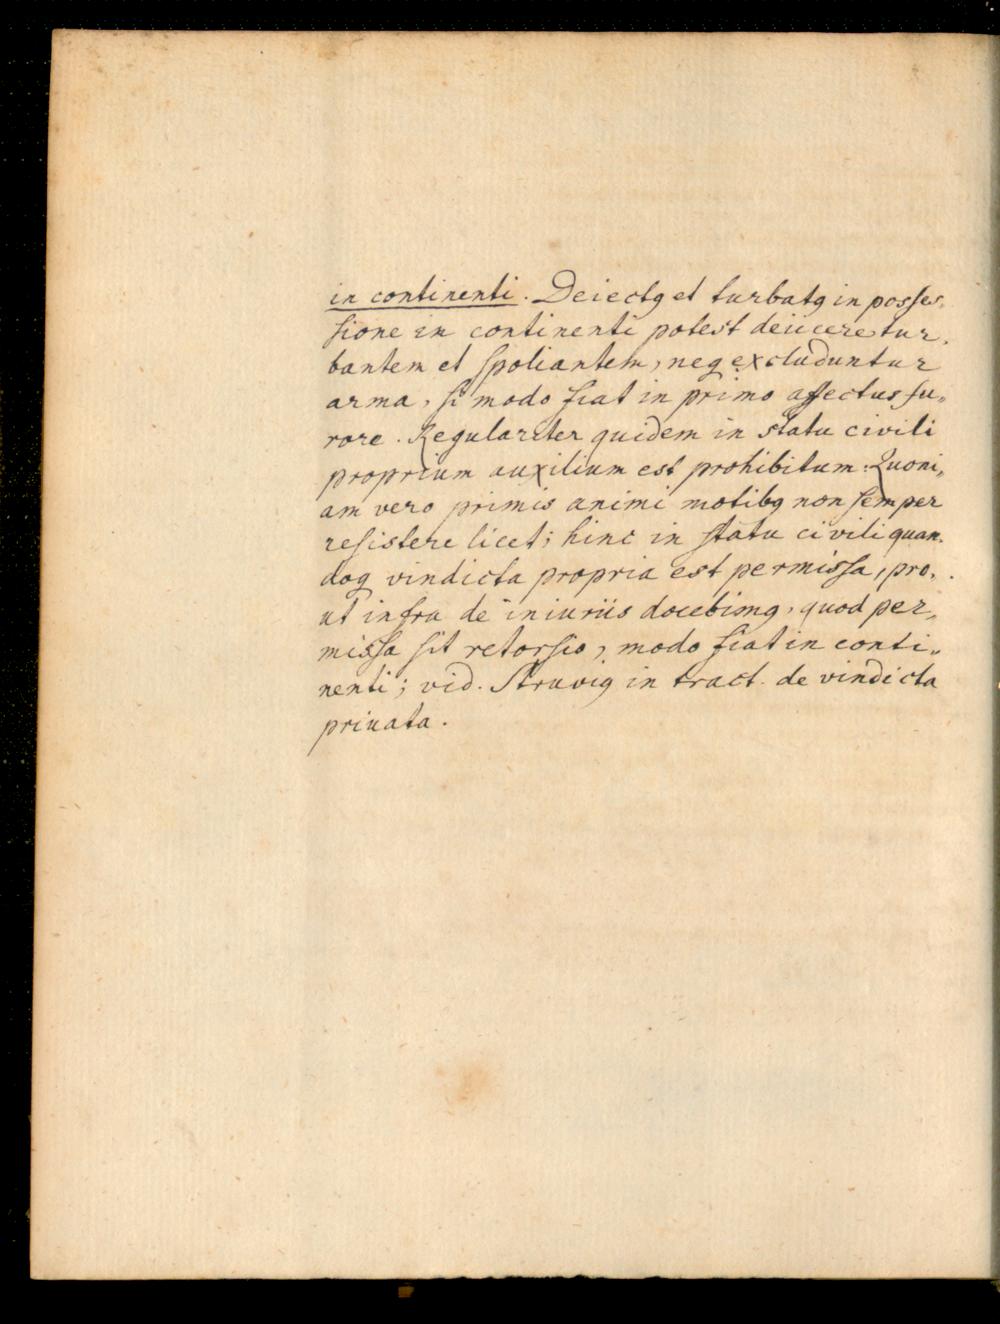 in continenti. Deiectq et turbatq in posses-
sione in continenti potest deiicere tur-
bantem et spoliantem, neq excluduntur
arma, si modo fiat in primo affectus fu-
rore. Regulariter quidem in statu civili
proprium auxilium est prohibitum: Quoni-
am vero primis animi motibq non semper
resistere licet; hinc in statu civili quan-
doq vindicta propria est permissa, pro-
ut infra de iniuriis docebimq, quod per-
missa sit retorsio, modo fiat in conti-
nenti; vid. Struviq in tract. de vindicta
privata.